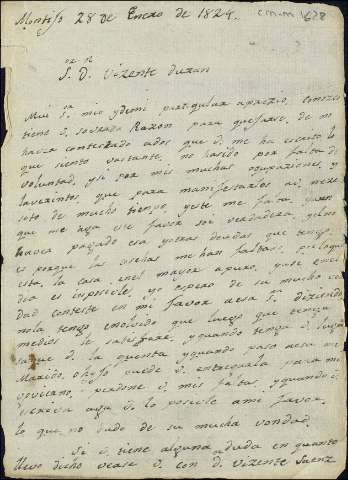 Montijo 28 de Enero de 1824.
CM-M 1628
S.or D.n Vizente Duran
Mui S.or mio y de mi particular aprezio, conozco
tiene v. sovrada Razon para quejarse, de no
haver contestado a dos que v. me ha escrito lo
que siento vastante, no ha sido por falta de
voluntad, y si por mis muchas ocupaziones, y
que para manifestarlos
soto de mucho tiempo, y este me falta,
que me aga ese favor son verdadera,
haver pagado esa y otras deudas que tengo
es porque las cosechas me han faltado, y
esta, la casa en el mayor apuro,
es inposivle, yo espero de su mucha von
dad conteste en mi favor a esa S.ra diziendo
no la tengo en olvido que luego que tenga
medios le satisfare, y quando tenga v. lugar
saque v. la quenta y quando pase a esa mi
Marido, o hijo puede v. entregarla para mi
govierno. perdone v. mis faltas, y quando v.
v. lo posivle a mi favor.
lo que no dudo de su mucha vondad.
Si v. tiene alguna duda en quanto
llevo dicho vease v. con d. Vizente Saenz